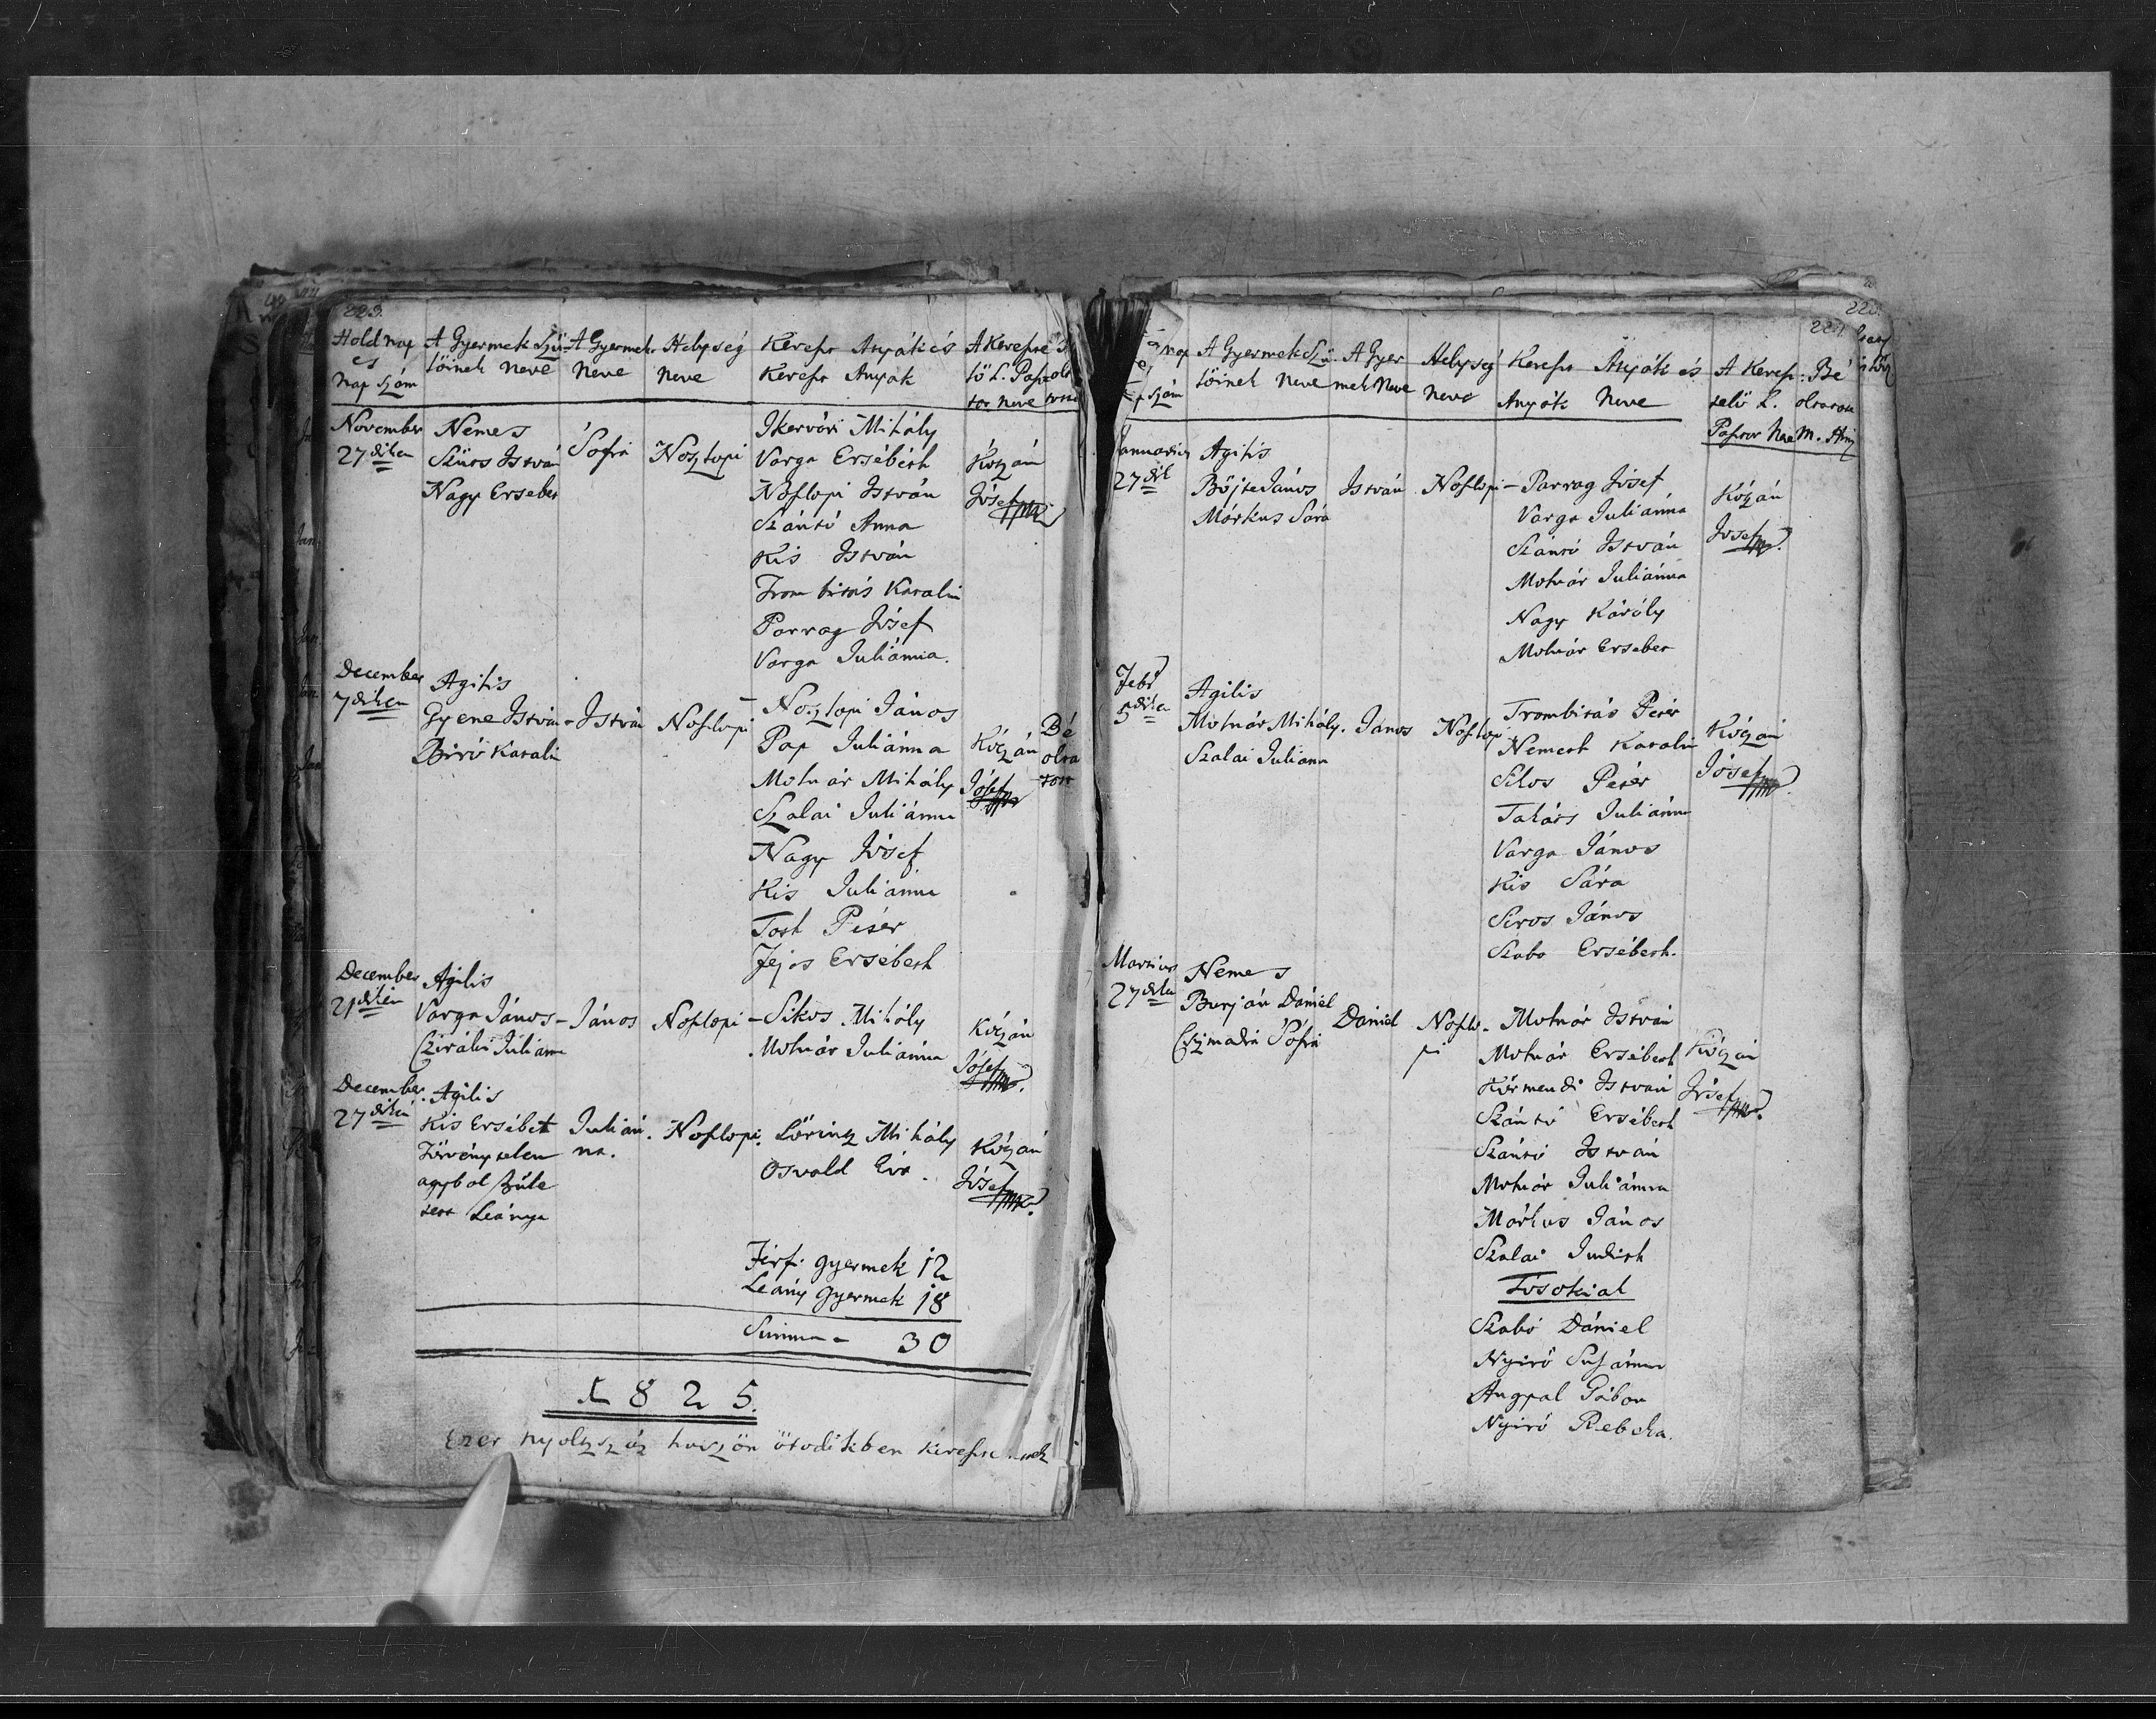 223.
Hold nap
és
nap szám
A Gyermek Szü-
löinek neve
A Gyermek
neve
Helység
neve
Kereszt Atyák és
Kereszt Anyák
A Keresz
tor neve
November
27dikén
Nemes
Szüts István
Nagy Ersebet
Sofia
Noszlopi
Ikervári Mihály
Varga Ersébeth
Noszlopi István
Szántó Anna
Kis István
Trombitás Katalin
Parrag Jósef
Varga Juliánna.
Kózán
Jósef
December
7dikén
Agilis
Gyene István - István
Biró Katalin
Noszlopi
Noszlopi János
Pap Juliánna
Molnár Mihály
Szalai Juliánna
Nagy Jósef
Kis Juliánna
Toth Péter
Fejos Ersébeth
Kózán
Jósef
Bé
olva
December
21dikén
Agilis
Varga János - János
Juliána
Noszlopi - Sikos Mihály
Molnár Juliánna
Kózán
Jósef
December
27dikén
Agilis
Kis Ersébet
Törvénytelen
agybol szüle
tett Leánya
Julián
na.
Noszlopi. Lörintz Mihály
Osvald Eva.
Kózán
Jósef
Férfi gyermek 12
Leány gyermek 18
Summa - 30
1825.
Ezer nyoltzszáz huszön ötödikben
223
A Gyermek Szü
löinek neve
A Gyer
mek Neve
Helység
neve
Kereszt Atyák és
Anyák Neve
A Keresz
telö L.
Pasztor Neve
Bé
Januarius
27dik
Agilis
Böjte János
Márkus Sára
István
Noszlopi - Parrag Jósef
Varga Juliánna
Szántó István
Molnár Juliánna
Nagy Károly
Molnár Ersebet
Kózán
Jósef
Feb
5dikén
Agilis
Molnár Mihály. János
Szalai Juliana
Noszlop
Trombitás Péter
Nemeth Katalin
Sikos Péter
Takáts Juliánna
Varga János
Kis Sára
János
Szabo Ersébeth.
Kózán
Jósef
Martius
27dikén
Nemes
Burján Dániel
Csizmadia Sófia
Daniel
Noszlo-
pi
Molnár István
Molnár Ersébeth
Körmendi István
Szántó Ersébeth
Szántó István
Molnár Juliánna
Márkus János
Szalai Judith
Tósokiak
Szabó Dániel
Nyiró Susánna
Angyal Gábor
Nyiró Rebeka.
Kózán
Jósef